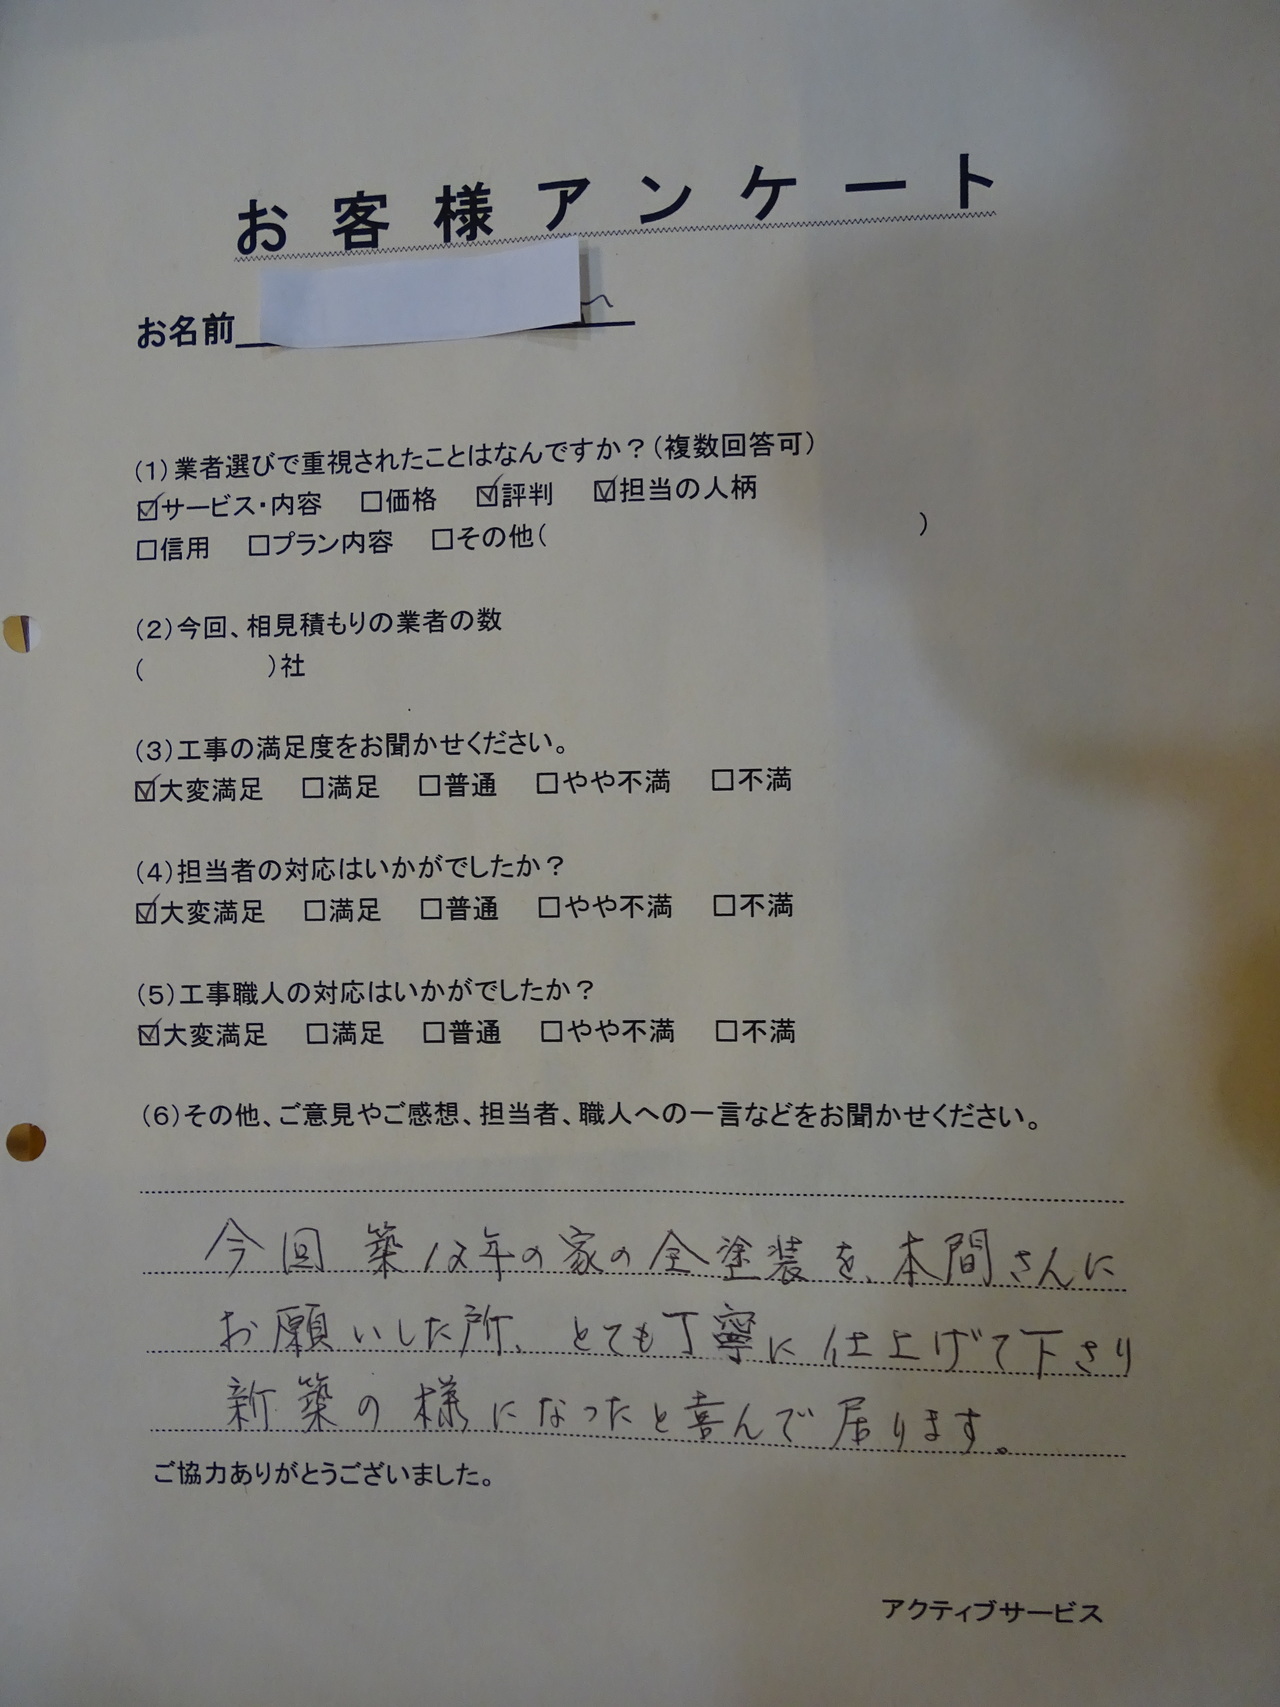 お客様アンケート
お名前
(1)業者選びで重視されたことはなんですか？(複数回答可)
☑サービス・内容 □価格 ☑評判 ☑担当の人柄
□信用 □プラン内容 □その他( )
(2)今回、相見積もりの業者の数
( )社
(3)工事の満足度をお聞かせください。
☑大変満足 □満足 □普通 □やや不満 □不満
(4)担当者の対応はいかがでしたか？
☑大変満足 □満足 □普通 □やや不満 □不満
(5)工事職人の対応はいかがでしたか？
☑大変満足 □満足 □普通 □やや不満 □不満
(6)その他、ご意見やご感想、担当者、職人への一言などをお聞かせください。
今回築12年の家の全塗装を、本間さんに
お願いした所、とても丁寧に仕上げて下さり
新築の様になったと喜んで居ります。
ご協力ありがとうございました。
アクティブサービス